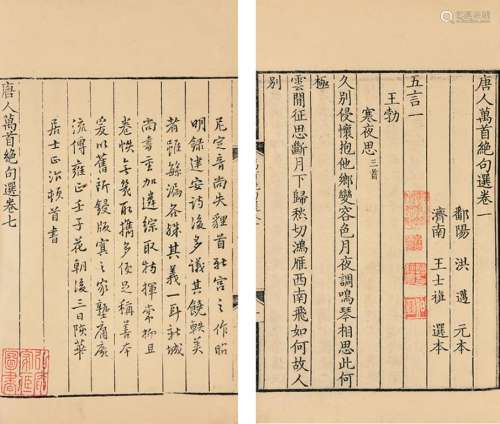 唐人萬首絶句選卷一
鄱陽 洪邁 元本
濟南 王士禛 選本
五言一
王勃
寒夜思 三首
久別侵懷抱他鄉變容色月夜調鳴琴相思此何
極
雲間征思斷月下歸愁切鴻雁西南飛如何故人
別
尼宣音尚失貍首 之作昭
明録建安詩後多議其饒軼美
者雖 漏各殊其義一耳新城
尚書重加遴綜取特揮 柳且
卷帙 取攜多便足稱善本
爰以舊所鋟版寘之家塾庸廣
流傳雍正壬子花朝後三日陳華
居士 頓首書
唐人萬首絶句選卷七